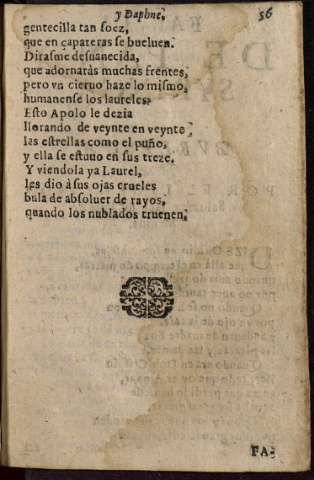 y Daphne.
56
gentecilla tan soez,
que en çapateras se bueluen.
Dirasme desuanecida,
que adornaràs muchas frentes,
pero vn cieruo haze lo mismo,
humanense los laureles.
Esto Apolo le dezia
llorando de veynte en veynte,
las estrellas como el puño,
y ella se estuuo en sus treze.
Y viendola ya Laurel,
les dio à sus ojas crueles
bula de absoluer de rayos,
quando los nublados truenen,
FA-